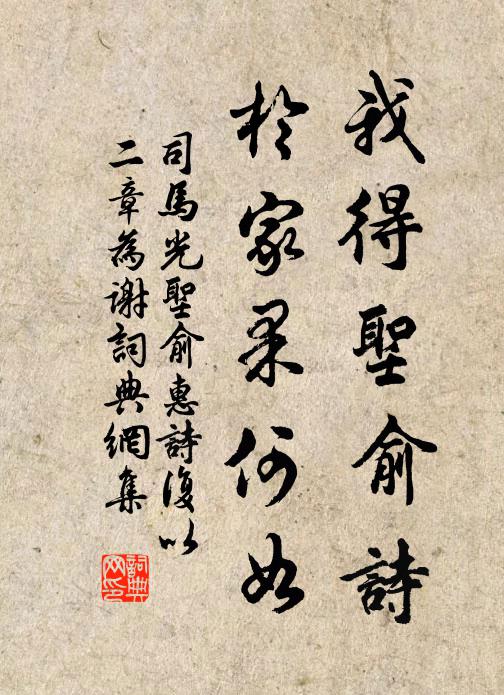 我得聖俞詩
於家果何如
司馬光聖俞惠詩復以
二章為谢詞典網集
詞典
网印